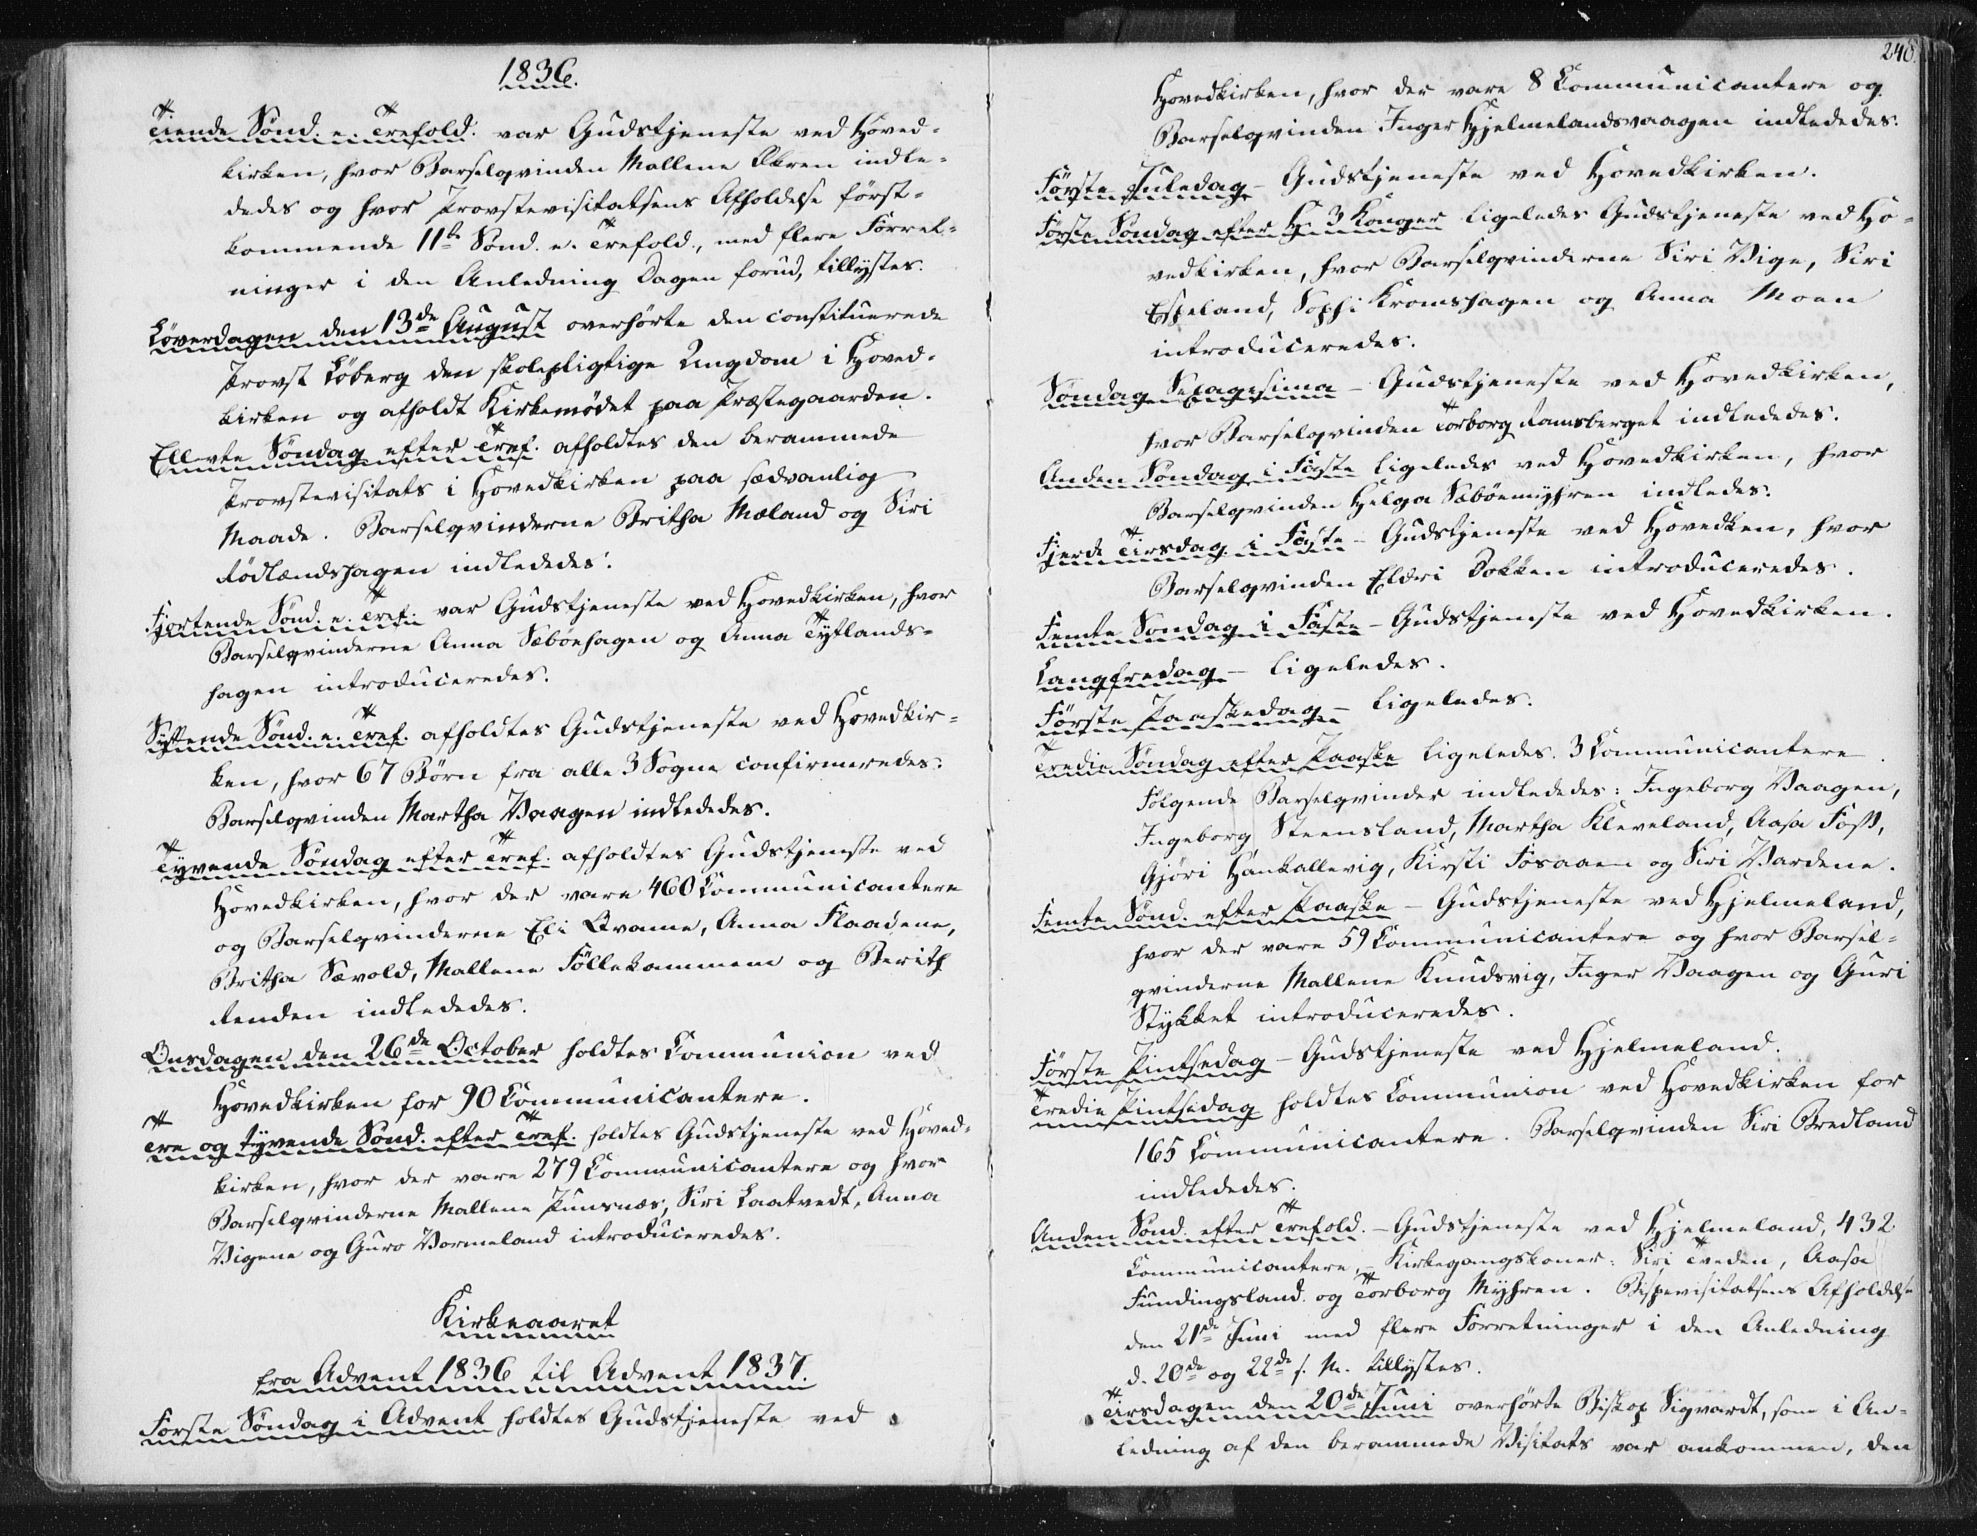 1836.
Tiende Sønd. e. Trefold. var Gudstjeneste ved Hoved-
kirken, hvor Barselqvinden Mallene Økren indle-
dedes og hvor Provstevisitatsens Afholdelse først-
kommende 11te Sønd. e. Trefold., med flere Forret-
ninger i den Anledning Dagen forud, tillystes.
Løverdagen den 13de August overhørte den constituerede
Provst Løberg den skolepligtige Ungdom i Hoved-
kirken og afholdt Kirkemødet paa Præstegaarden.
Ellevte Søndag efter Tref. afholdtes den berammede
Provstevisitats i Hovedkirken paa sædvanlig
Maade. Barselqvinderne Britha Mæland og Siri
Rødlændshagen indlededes.
Fjortende Sønd. e. Tref. var Gudstjeneste ved Hovedkirken, hvor
Barselqvinderne Anna Sæbøehagen og Anna Tytlands-
hagen introduceredes.
Syttende Sønd. e. Tref. afholdtes Gudstjeneste ved Hovedkir-
ken, hvor 67 Børn fra alle 3 Sogne confirmeredes.
Barselqvinden Martha Vaagen indlededes.
Tyvende Søndag efter Tref. afholdtes Gudstjeneste ved
Hovedkirken, hvor der vare 460 Communicantere
og Barselqvinderne Eli Qvame, Anna Flaadene,
Britha Sævold, Mallene Føllekammen og Berith
Renden indlededes.
Onsdagen den 26de October holdtes Communion ved
Hovedkirken for 90 Communicantere.
Tre og tyvende Sønd. efter Tref. holdtes Gudstjeneste ved Hoved-
kirken, hvor der vare 279 Communicantere og hvor
Barselqvinderne Mallene Pundsnæs, Siri Laatvedt, Anna
Vigene og Guro Vormeland introduceredes.
Kirkeaaret
fra Advent 1836 til Advent 1837.
Første Søndag i Advent holdtes Gudstjeneste ved
240
Hovedkirken, hvor der vare 8 Communicantere og
Barselqvinden Inger Hjelmelandsvaagen indlededes.
Første Juledag – Gudstjeneste ved Hovedkirken.
Første Søndag efter H. 3 Konger ligeledes Gudstjeneste ved Ho-
vedkirken, hvor Barselqvinderne Siri Vige, Siri
Espeland, Soph: Kromshagen og Anna Moen
introduceredes.
Søndag Sexagesima – Gudstjeneste ved Hovedkirken,
hvor Barselqvinden Torborg Ramsberget indlededes.
Anden Søndag i Faste ligeledes ved Hovedkirken, hvor
Barselqvinden Helga Sæbøemyhren indledes.
Fjerde Tirsdag i Faste – Gudstjeneste ved Hovedken, hvor
Barselqvinden Eldri Dokken introduceredes.
Femte Søndag i Faste – Gudstjeneste ved Hovedkirken.
Langfredag – ligeledes.
Første Paaskedag – ligeledes.
Tredie Søndag efter Paaske ligeledes. 3 Communicantere.
Følgende Barselqvinder indlededes: Ingeborg Vaagen,
Ingeborg Steensland, Martha Kleveland, Aasa Foss,
Gjøri Hankallevig, Kirsti Fosaaen og Siri Vardene.
Femte Sønd. efter Paaske – Gudstjeneste ved Hjelmeland,
hvor der vare 59 Communicantere og hvor Barsel-
qvinderne Mallene Knudsvig, Inger Vaagen og Guri
Stykket introduceredes.
Første Pintsedag – Gudstjeneste ved Hjelmeland.
Tredie Pintsedag holdtes Communion ved Hovedkirken for
165 Communicantere. Barselqvinden Siri Bredland
indlededes.
Anden Sønd. efter Trefold. – Gudstjeneste ved Hjelmeland, 432
Communicantere, – Kirkegangskoner: Siri Tveden, Aasa
Fundingsland og Torborg Myhren. Bispevisitatsens Afholdelse
den 21de Juni med flere Forretninger i den Anledning
d. 20de og 22de s. M. tillystes.
Tirsdagen den 20de Juni overhørte Biskop Sigvardt, som i An-
ledning af den berammede Visitats var ankommen, den